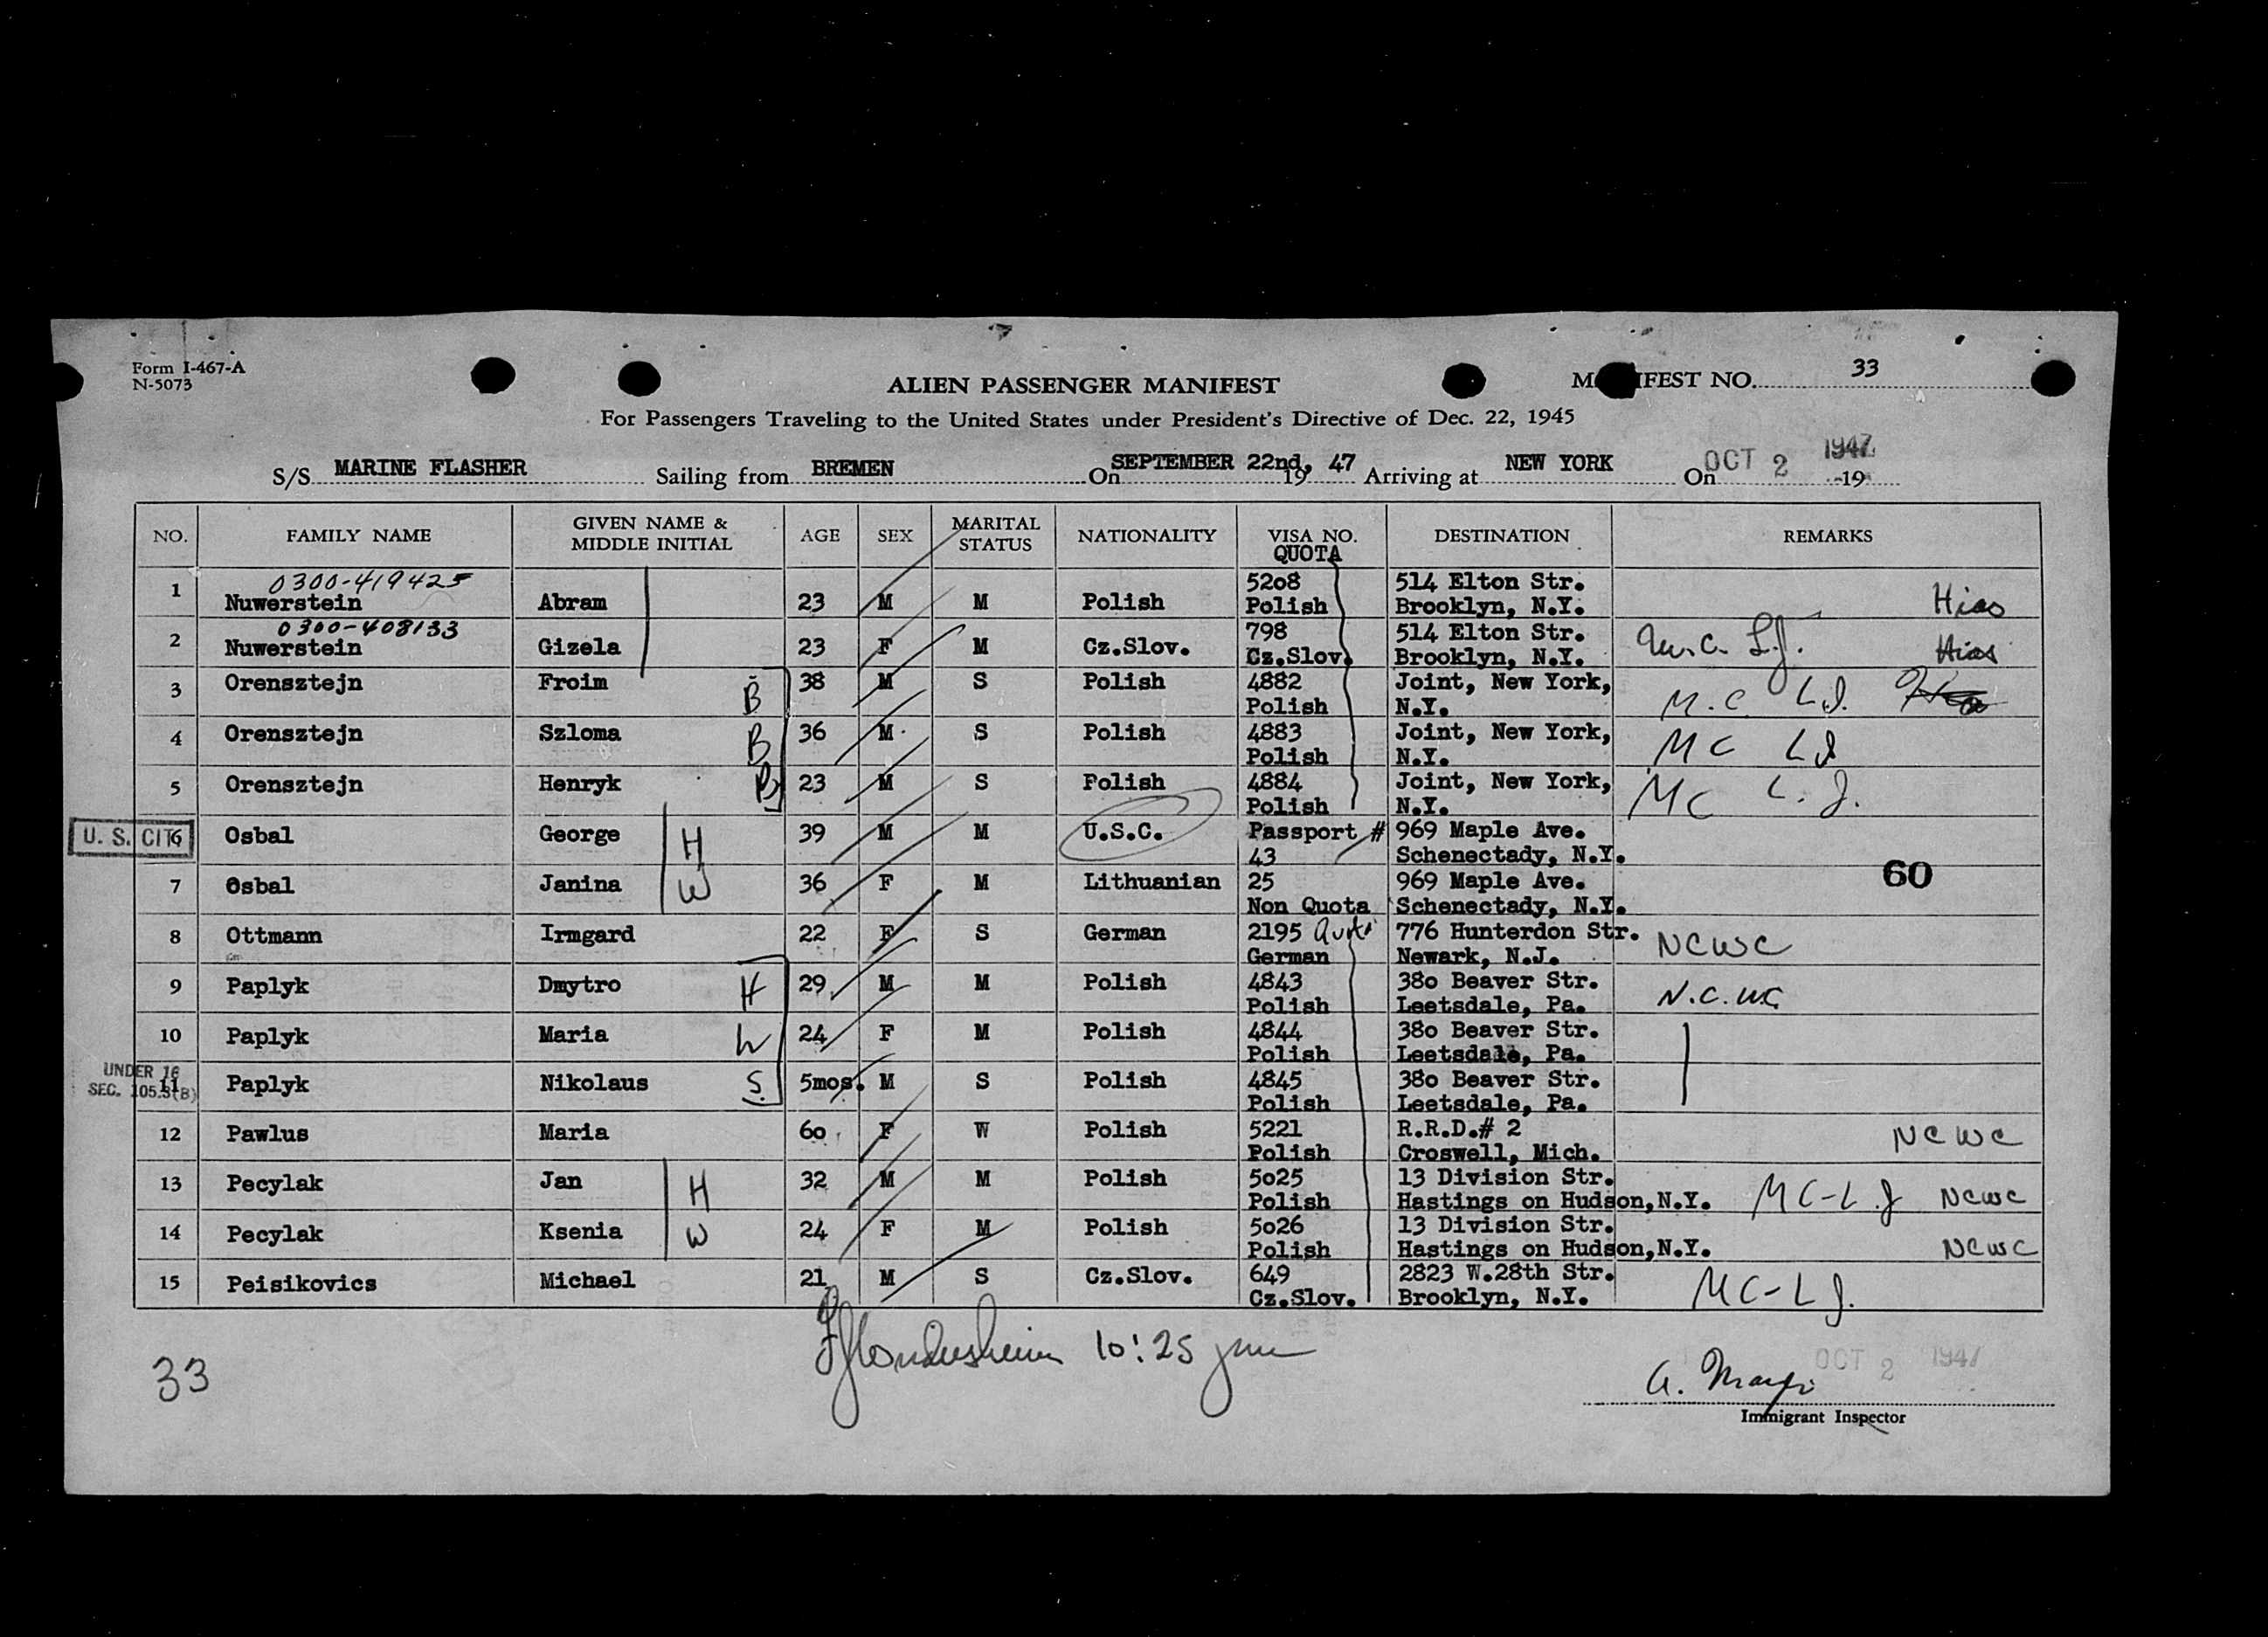 Form I-467-A
N-5073
ALIEN PASSENGER MANIFEST
M IFEST NO. 33
For Passengers Traveling to the United States under President's Directive of Dec. 22, 1945
S/S MARINE FLASHER Sailing from BREMEN On SEPTEMBER 22nd, 1947 Arriving at NEW YORK On OCT 2 1947 19
NO. FAMILY NAME GIVEN NAME & MIDDLE INITIAL AGE SEX MARITAL STATUS NATIONALITY VISA NO. QUOTA DESTINATION REMARKS
0300-419425 5208 514 Elton Str.
1 Nuwerstein Abram 23 M M Polish Polish Brooklyn, N.Y. Hias
0300-408133 798 514 Elton Str.
2 Nuwerstein Gizela 23 F M Cz.Slov. Cz.Slov. Brooklyn, N.Y. M.C. L.J. Hias
3 Orensztejn Froim B 38 M S Polish 4882 Joint, New York,
Polish N.Y. M.C. L.J.
4 Orensztejn Szloma B 36 M S Polish 4883 Joint, New York,
Polish N.Y. MC LJ
5 Orensztejn Henryk B 23 M S Polish 4884 Joint, New York,
Polish N.Y. MC L.J.
U. S. CIT 6 Osbal George H 39 M M U.S.C. Passport # 969 Maple Ave.
43 Schenectady, N.Y.
7 Osbal Janina W 36 F M Lithuanian 25 969 Maple Ave. 60
Non Quota Schenectady, N.Y.
8 Ottmann Irmgard 22 F S German 2195 Quota 776 Hunterdon Str. NCWC
German Newark, N.J.
9 Paplyk Dmytro H 29 M M Polish 4843 380 Beaver Str. N.C.WC
Polish Leetsdale, Pa.
10 Paplyk Maria W 24 F M Polish 4844 380 Beaver Str.
Polish Leetsdale, Pa.
UNDER 16
SEC. 105.5(B) 11 Paplyk Nikolaus S. 5mos. M S Polish 4845 380 Beaver Str.
Polish Leetsdale, Pa.
12 Pawlus Maria 60 F W Polish 5221 R.R.D.# 2 NCWC
Polish Croswell, Mich.
13 Pecylak Jan H 32 M M Polish 5025 13 Division Str.
Polish Hastings on Hudson,N.Y. MC-L.J NCWC
14 Pecylak Ksenia W 24 F M Polish 5026 13 Division Str.
Polish Hastings on Hudson,N.Y. NCWC
15 Peisikovics Michael 21 M S Cz.Slov. 649 2823 W.28th Str.
Cz.Slov. Brooklyn, N.Y. MC-LJ.
10:25
33
OCT 2 1947
Immigrant Inspector